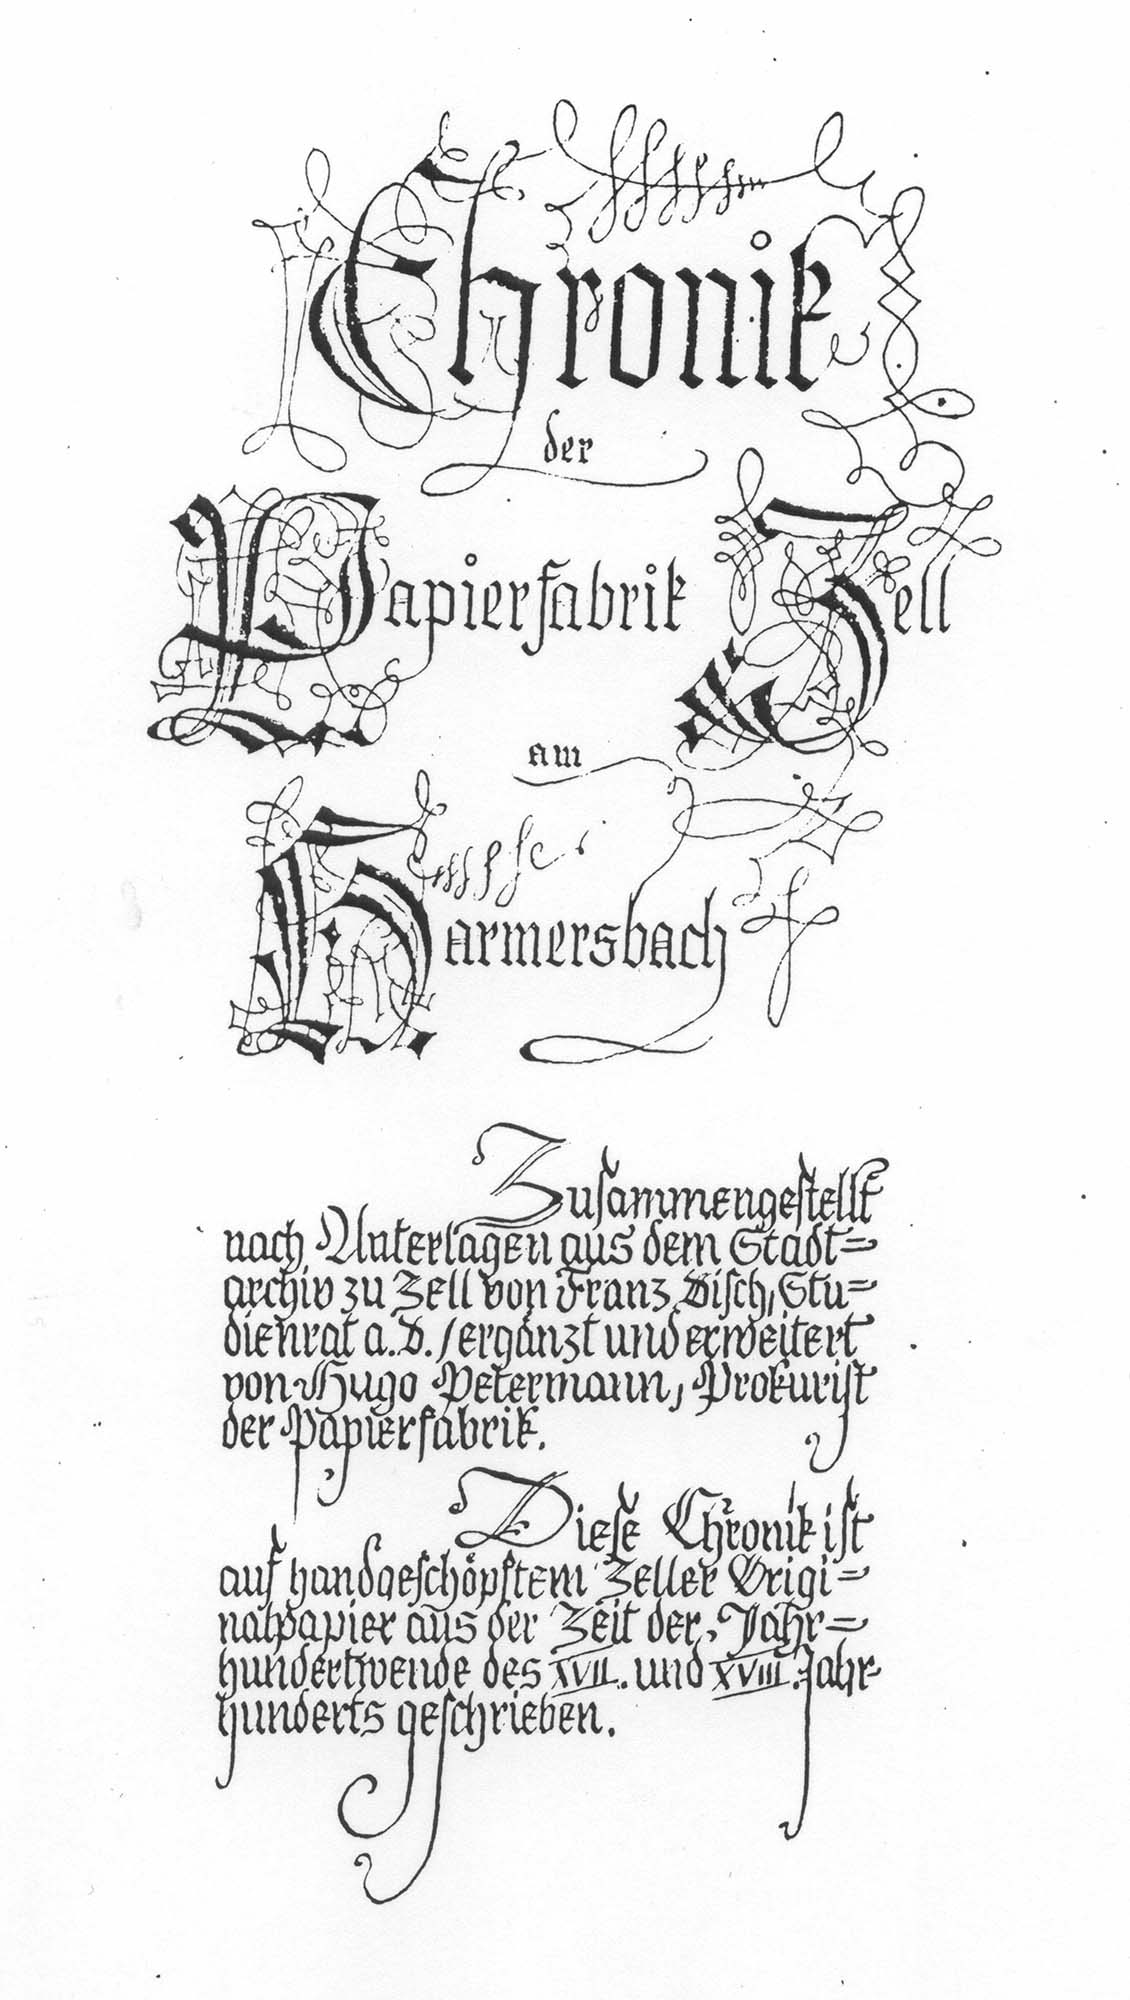 Chronik
der
Papierfabrik Zell
am
Harmersbach
Zusammengestellt
nach Unterlagen aus dem Stadt=
archiv zu Zell von Franz Disch, Stu=
dienrat a.D. / ergänzt und erweitert
von Hugo Petermann, Prokurist
der Papierfabrik.
Diese Chronik ist
auf handgeschöpftem Zeller Origi=
nalpapier aus der Zeit der Jahr=
hundertwende des XVII. und XVIII. Jahr-
hunderts geschrieben.